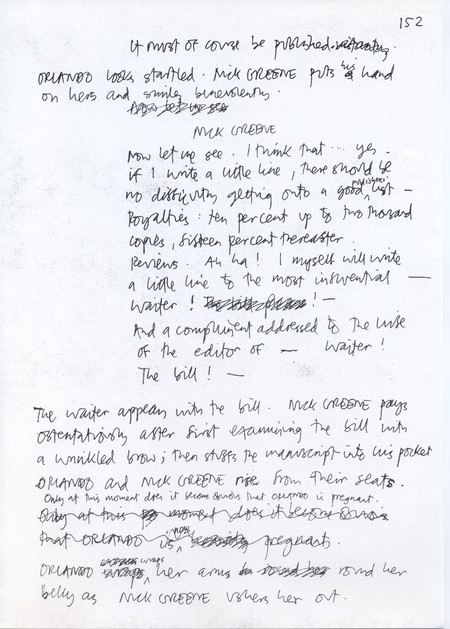 152
It must of course be published.
ORLANDO looks startled. NICK GREENE puts his hand
on hers and smiles benevolently.
NICK GREENE
Now let me see. I think that ... yes.
if I write a little line, there should be
no difficulty getting onto a good publishers' list —
Royalties: ten percent up to two thousand
copies, fifteen percent thereafter.
Reviews. Ah ha! I myself will write
a little line to the most influential —
waiter! ! —
And a compliment addressed to the wife
of the editor of — Waiter!
The bill! —
The waiter appears with the bill. NICK GREENE pays
ostentatiously after first examining the bill with
a wrinkled brow; then stuffs the manuscript into his pocket
ORLANDO and NICK GREENE rise from their seats.
Only at this moment does it become obvious that ORLANDO is pregnant.
Only at this moment does it become obvious
that ORLANDO is now pregnant.
ORLANDO wraps her arms round her
belly as NICK GREENE ushers her out.